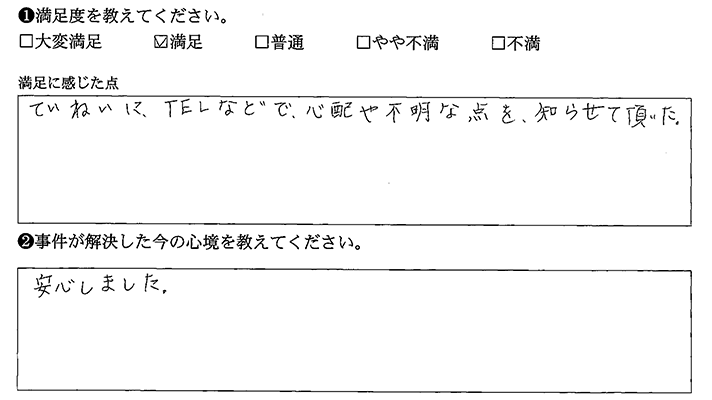 ❶満足度を教えてください。
□大変満足 ☑満足 □普通 □やや不満 □不満
満足に感じた点
ていねいに、TELなどで、心配や不明な点を、知らせて頂いた。
❷事件が解決した今の心境を教えてください。
安心しました。